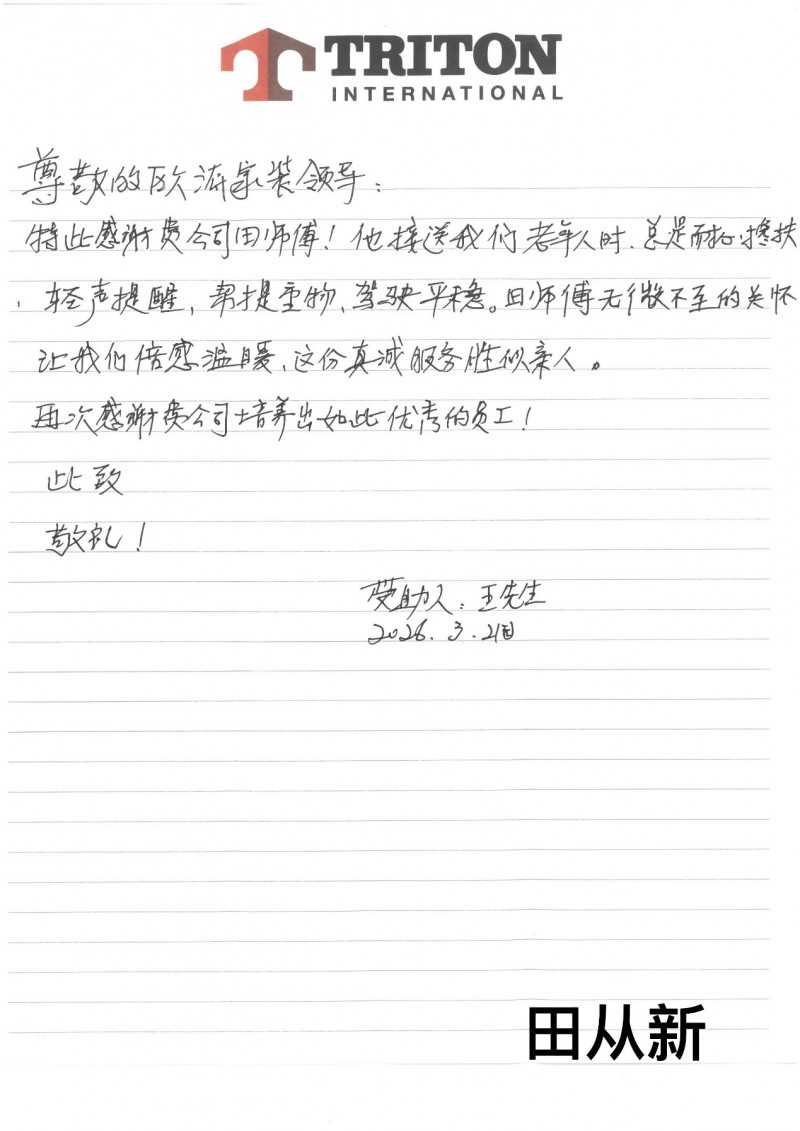 TRITON
INTERNATIONAL
尊敬的欧派家装领导：
特此感谢贵公司田师傅！他接送我们老年人时，总是耐心搀扶
，轻声提醒，帮提重物，驾驶平稳。田师傅无微不至的关怀
让我们倍感温暖，这份真诚服务胜似亲人。
再次感谢贵公司培养出如此优秀的员工！
此致
敬礼！
受助人：王先生
2026.3.21日
田从新